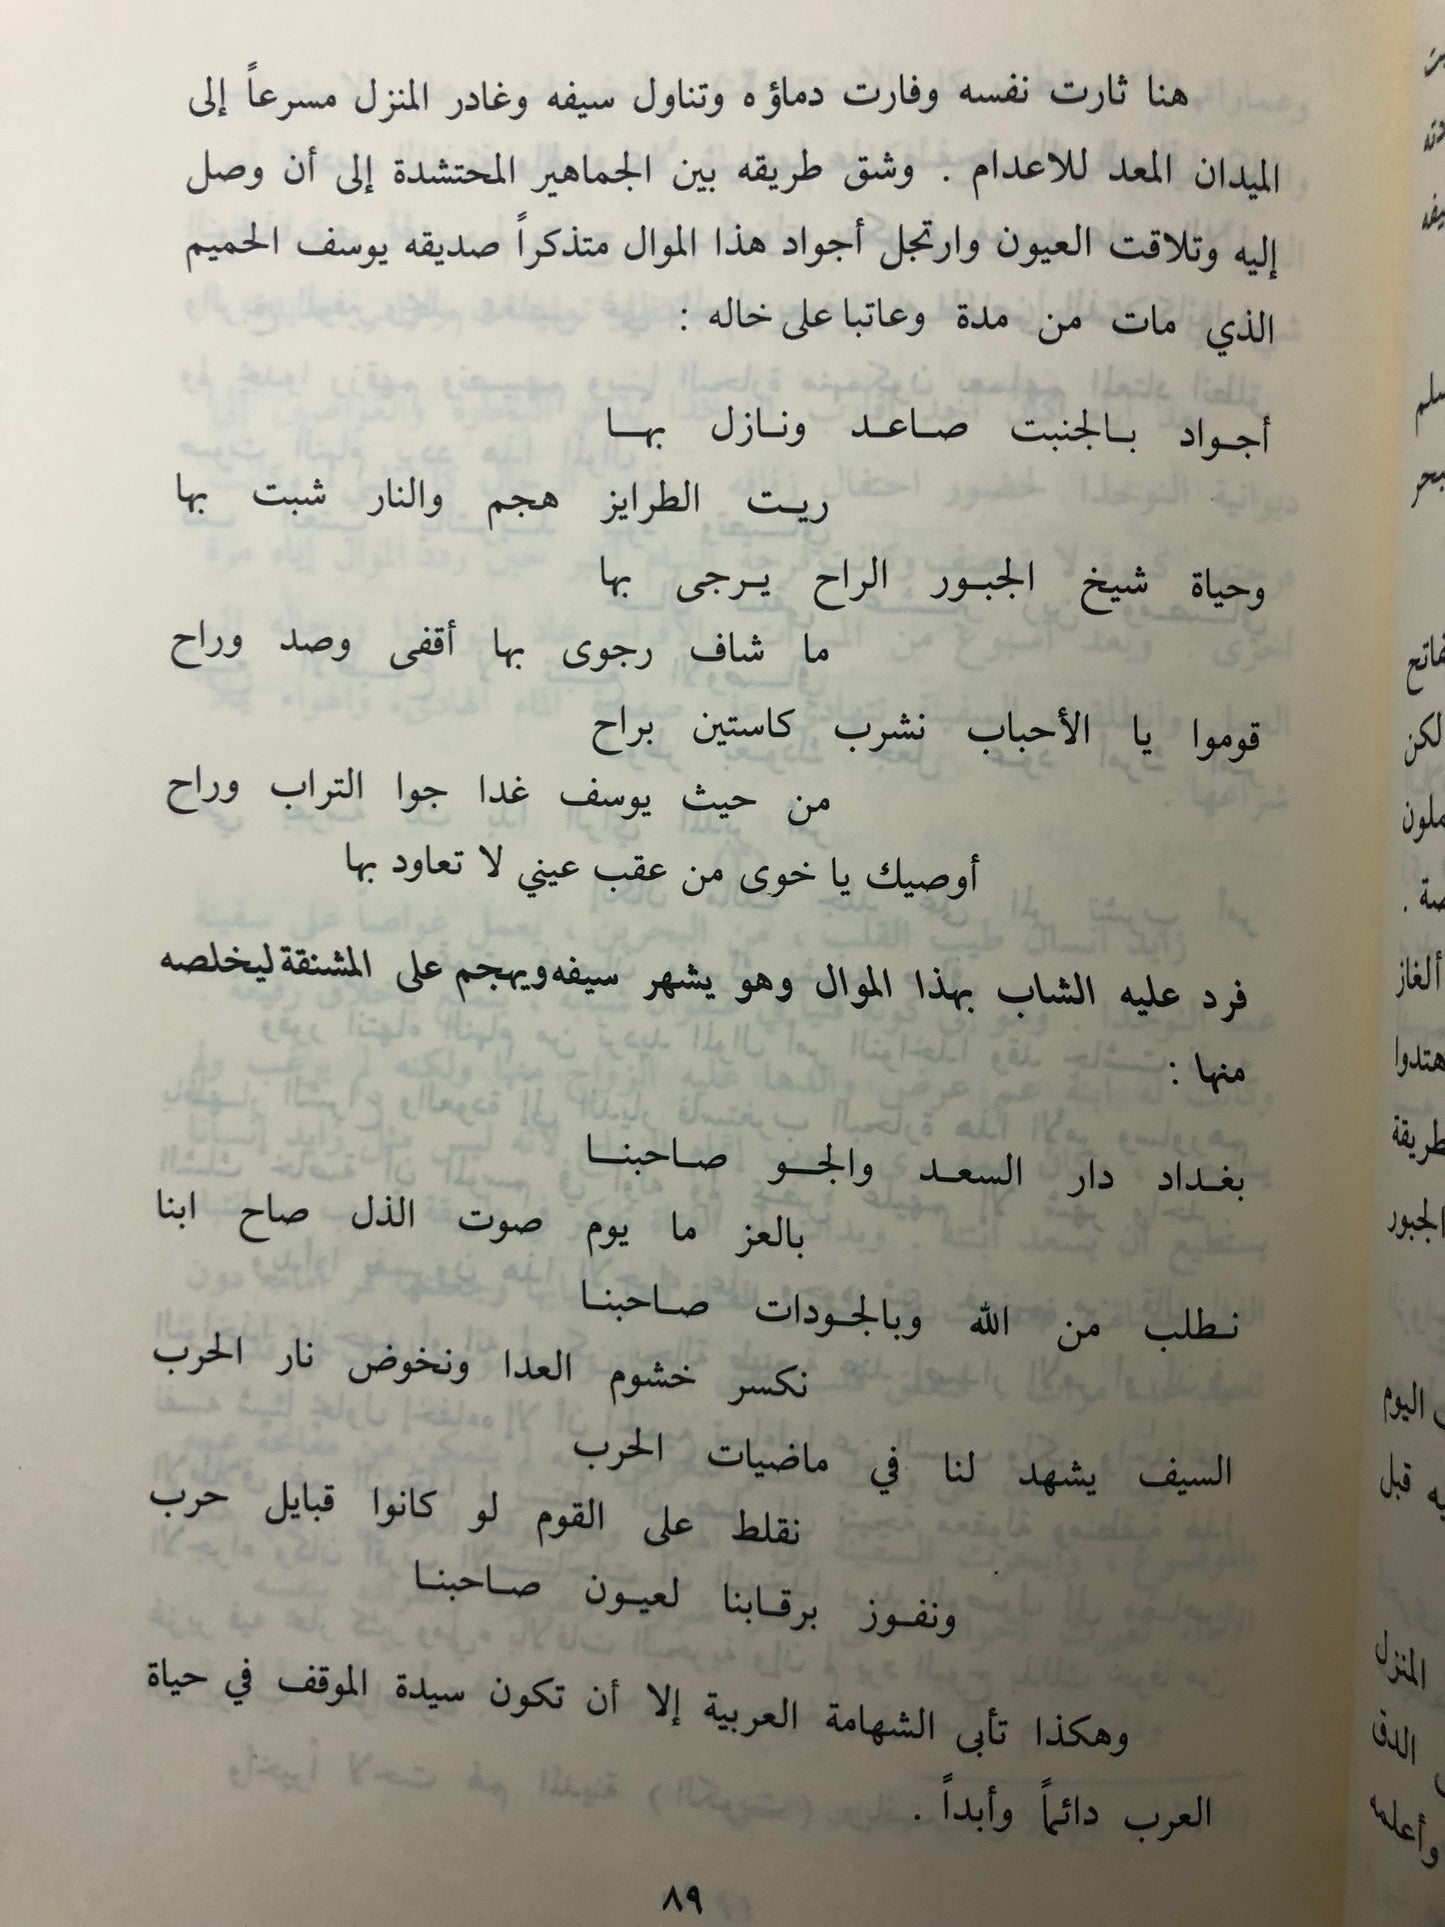 هنا ثارت نفسه وفارت دماؤه وتناول سيفه وغادر المنزل مسرعاً إلى
الميدان المعد للاعدام . وشق طريقه بين الجماهير المحتشدة إلى أن وصل
إليه وتلاقت العيون وارتجل أجواد هذا الموال متذكراً صديقه يوسف الحميم
الذي مات من مدة وعاتبا على خاله :
أجواد بالجنبت صاعد ونازل بها
ريت الطرايز هجم والنار شبت بها
وحياة شيخ الجبور الراح يرجى بها
ما شاف رجوى بها أقفى وصد وراح
قوموا يا الأحباب نشرب كاستين براح
من حيث يوسف غدا جوا التراب وراح
أوصيك يا خوى من عقب عيني لا تعاود بها
فرد عليه الشاب بهذا الموال وهو يشهر سيفه ويهجم على المشنقة ليخلصه
منها :
بغداد دار السعد والجو صاحبنا
بالعز ما يوم صوت الذل صاح ابنا
نطلب من الله وبالجودات صاحبنا
نكسر خشوم العدا ونخوض نار الحرب
السيف يشهد لنا في ماضيات الحرب
نقلط على القوم لو كانوا قبايل حرب
ونفوز برقابنا لعيون صاحبنا
وهكذا تأبى الشهامة العربية إلا أن تكون سيدة الموقف في حياة
العرب دائماً وأبداً .
٨٩